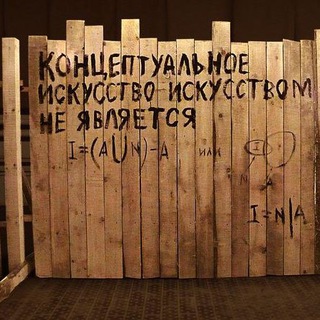 КОНЦЕПТУАЛЬНОЕ
ИСКУССТВО ИСКУССТВОМ
НЕ ЯВЛЯЕТСЯ
I=(A∪N)-A или I
N A
I=N|A